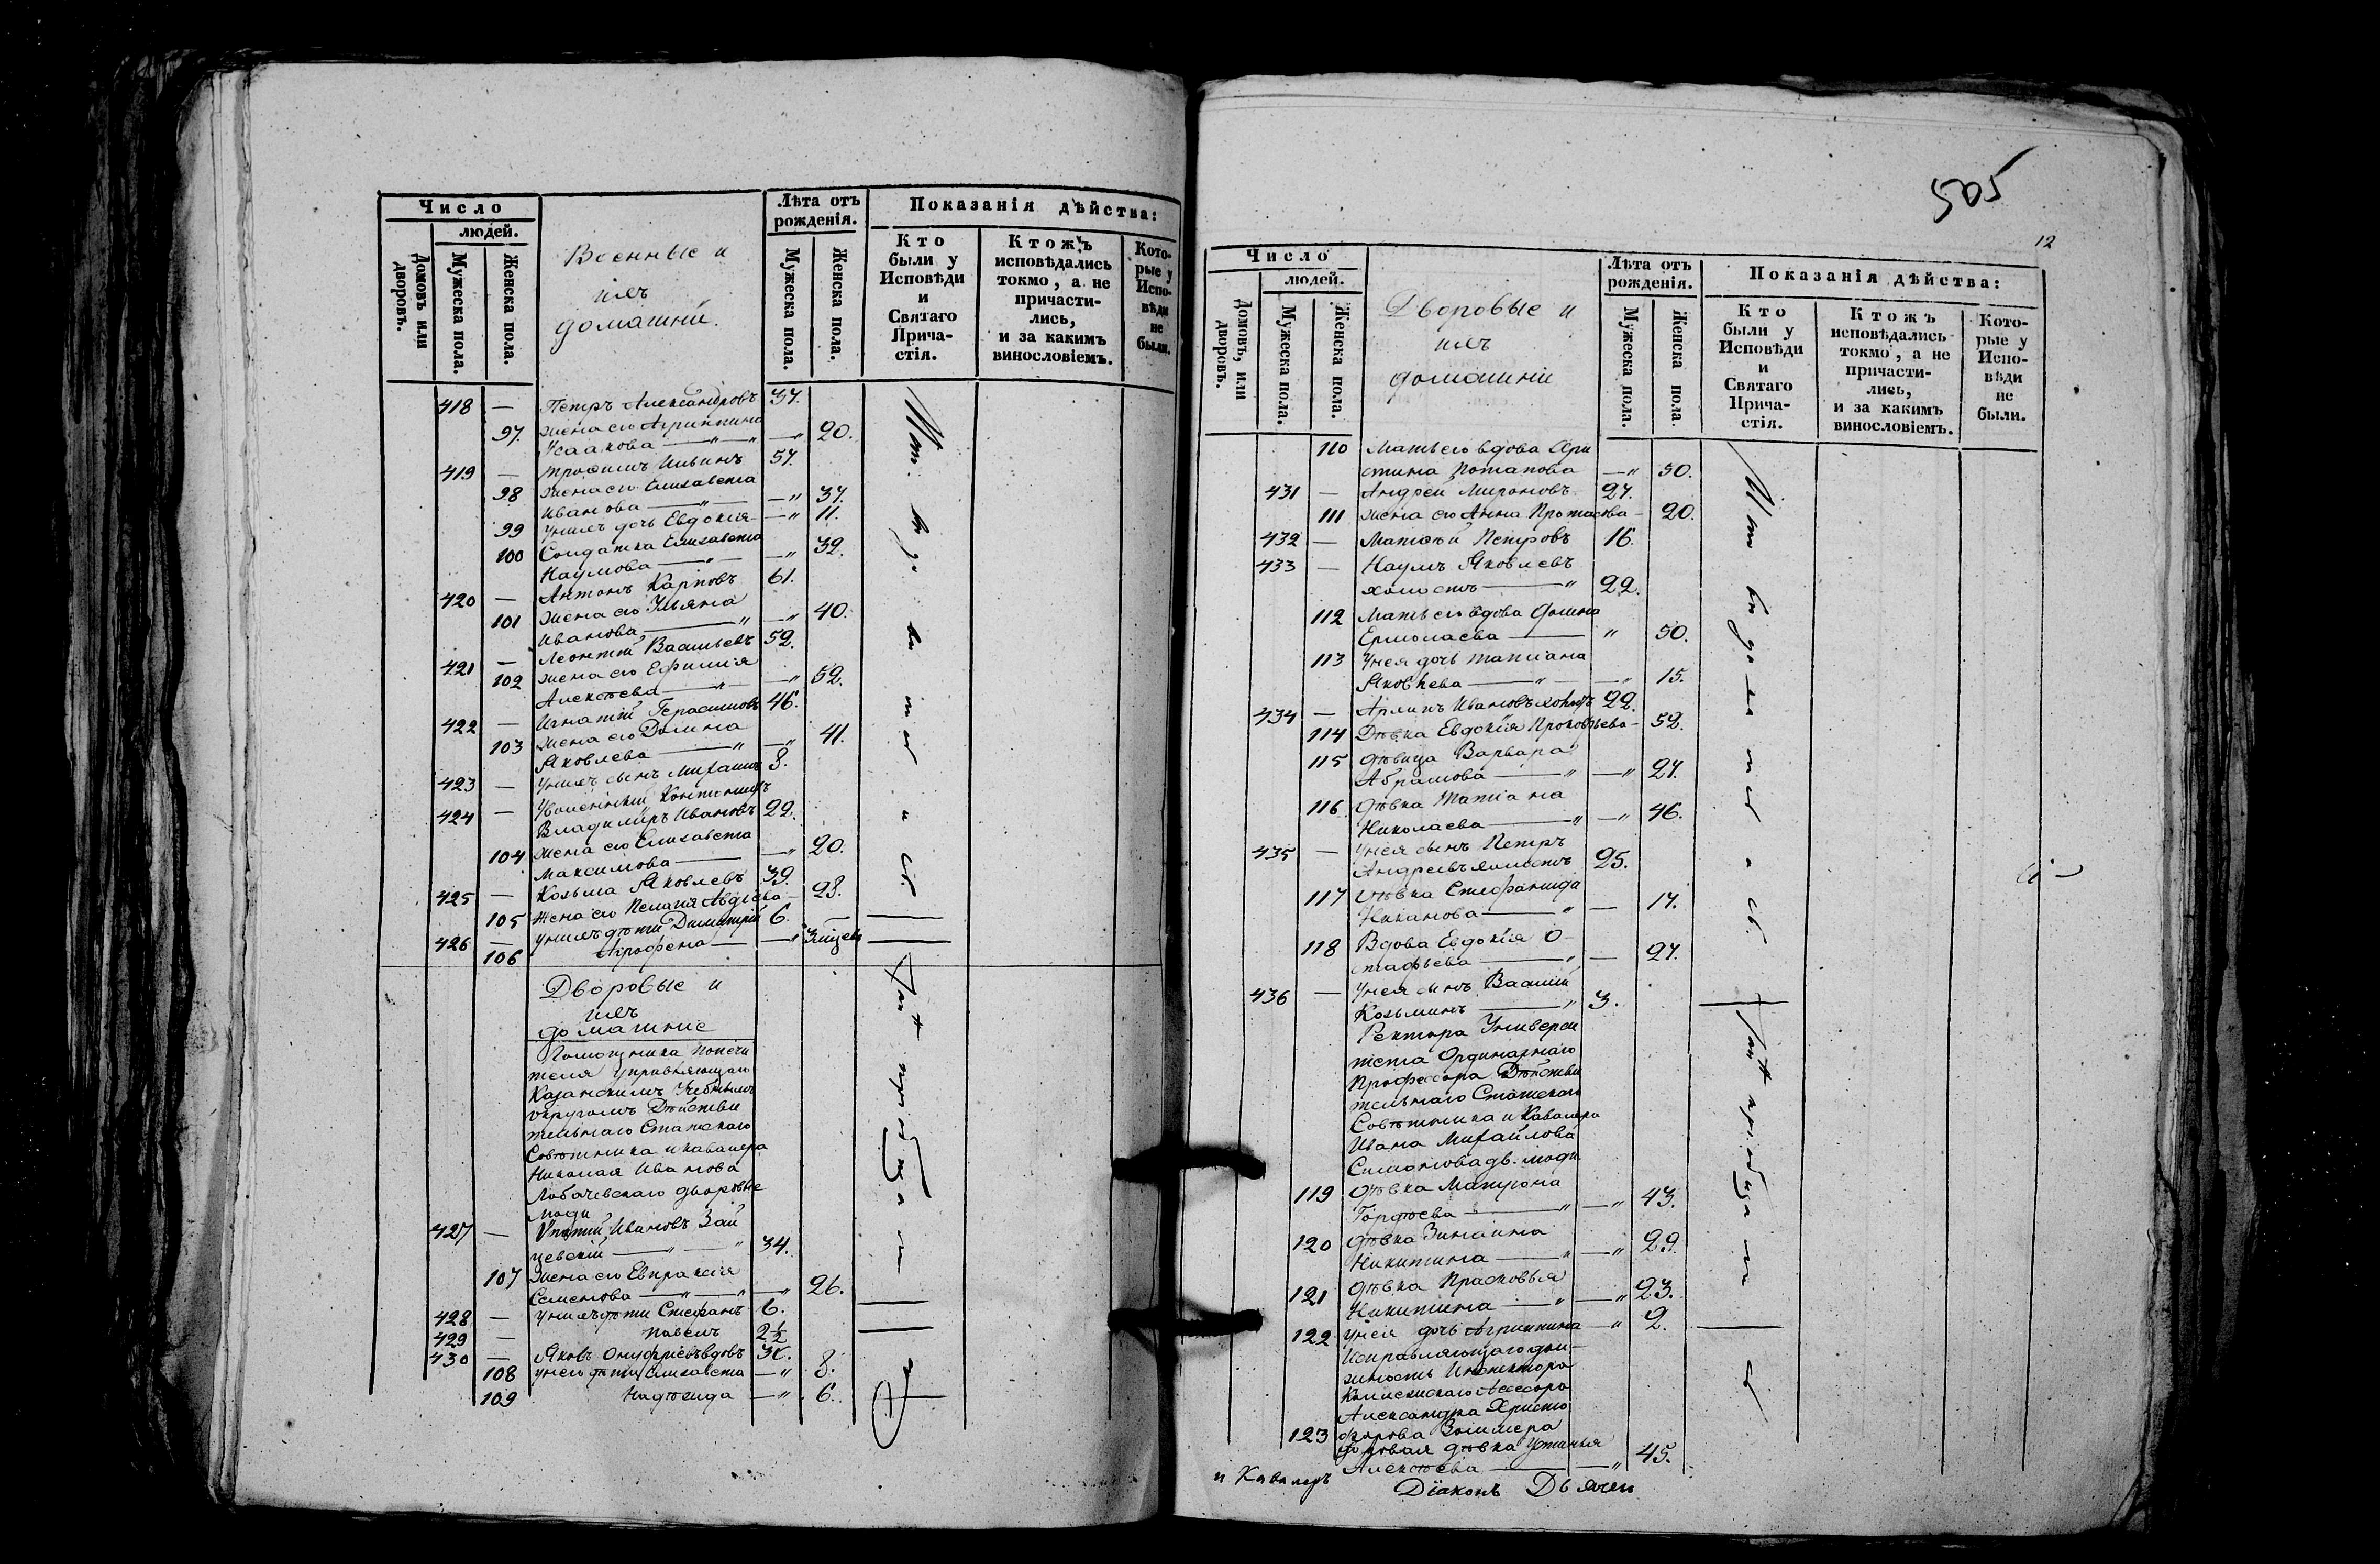 Число
людей.
Домовъ или дворовъ.
Мужеска пола.
Женска пола.
Военные и
ихъ
домашніи.
Лѣта отъ рожденія.
Мужеска пола.
Женска пола.
Показанія дѣйства:
Кто были у Исповѣди и Святаго Прича-стія.
Ктожъ исповѣдались токмо, а не причасти-лись, и за какимъ винословіемъ.
Кото-рые у Испо-вѣди не были.
418 — Петръ Александровъ 37.
97. жена его Агриппина
Исаакова — „ — „ — „ 20.
419 — Трофимъ Ильинъ 57.
98 жена его Елизавета
Иванова — „ — „ 37.
99 У нихъ дочь Евдокія — „ 11.
100 Солдатка Елизавета
Наумова — „ — „ 32.
420 — Антонъ Карповъ 61.
101 жена его Ульяна
Иванова — „ — „ 40.
421 — Леонтій Васильевъ 52.
102 жена его Ефимія
Алексѣева — „ — „ 52.
422 — Игнатій Герасимовъ 46.
103 жена его Домна
Яковлева — „ — „ 41.
423 — У нихъ сынъ Михаилъ 8.
424 —
Владимиръ Ивановъ 22.
104 жена его Елизавета
Максимова — „ 20.
425 — Козьма Яковлевъ 39.
105 Жена его Пелагія Авдіева — 28.
426 — У нихъ дѣти Димитрій 6.
106 Агрофена — „
Дворовые и
ихъ
домашніе
Помощника попечи
теля управляющаго
Казанскимъ Учебнымъ
округомъ Дѣйстви
тельнаго Статскаго
Совѣтника и кавалера
Николая Иванова
Лобачевскаго дворовые
люди
427 — Ипатій Ивановъ Зай
цевскій — „ — „ 34.
107 жена его Евпраксія
Семенова — „ — „ — „ 26.
428 — У нихъ дѣти Стефанъ 6.
429 — Павелъ 2½
430 — Яковъ Онуфріевъ вдовъ
108 У него дѣти Елизавета — „ 8.
109 Надѣжда — „ 6.
505
12
Число
людей.
Домовъ, или дворовъ.
Мужеска пола.
Женска пола.
Дворовые и
ихъ
домашніи
Лѣта отъ рожденія.
Мужеска пола.
Женска пола.
Показанія дѣйства:
Кто были у Исповѣди и Святаго Прича-стія.
Ктожъ исповѣдались токмо, а не причасти-лись, и за какимъ винословіемъ.
Кото-рые у Испо-вѣди не были.
110 Мать его вдова
Потапова — „ 50.
431 — Андрей Мироновъ 27.
111 жена его Анна Протасова — 20.
432 — Матѳѣй Петровъ 16.
433 — Наумъ Яковлевъ
холостъ — „ 22.
112 Мать его вдова Домна
Ермолаева — „ 50.
113 У нея дочь Татіана
Яковлева — „ — „ 15.
434 — Ивановъ холостъ 22.
114 Дѣвка Евдокія Прокофьева — 52.
115 дѣвица Варвара
Абрамова — „ — „ 27.
116 дѣвка Татіана
Николаева — „ — „ 46.
435 — У нея сынъ Петръ
Андреевъ холостъ 25.
117 дѣвка Стефанида
— „ — 17.
118 Вдова Евдокія О-
стафьева — „ — 27.
436 — У нея сынъ Василій
Козьминъ — „ 3.
Ректора Универси
тета Ординарнаго
Профессора Дѣйстви
тельнаго Статскаго
Совѣтника и Кавалера
Ивана Михайлова
Симонова дв. люди
119 дѣвка Матрона
Гордѣева — „ — „ 43.
120 дѣвка Зинаина
Никитина — „ — „ 29.
121 дѣвка Прасковья
Никитина — „ — „ 23.
122 У нея дочь Агриппина — „ 2.
Исправляющаго дол-
жность Инспектора
Коллежскаго Асессора
Александра Христо
форова
123 дворовая дѣвка Устинья
Алексѣева — „ 45.
и Кавалеръ
Діаконъ